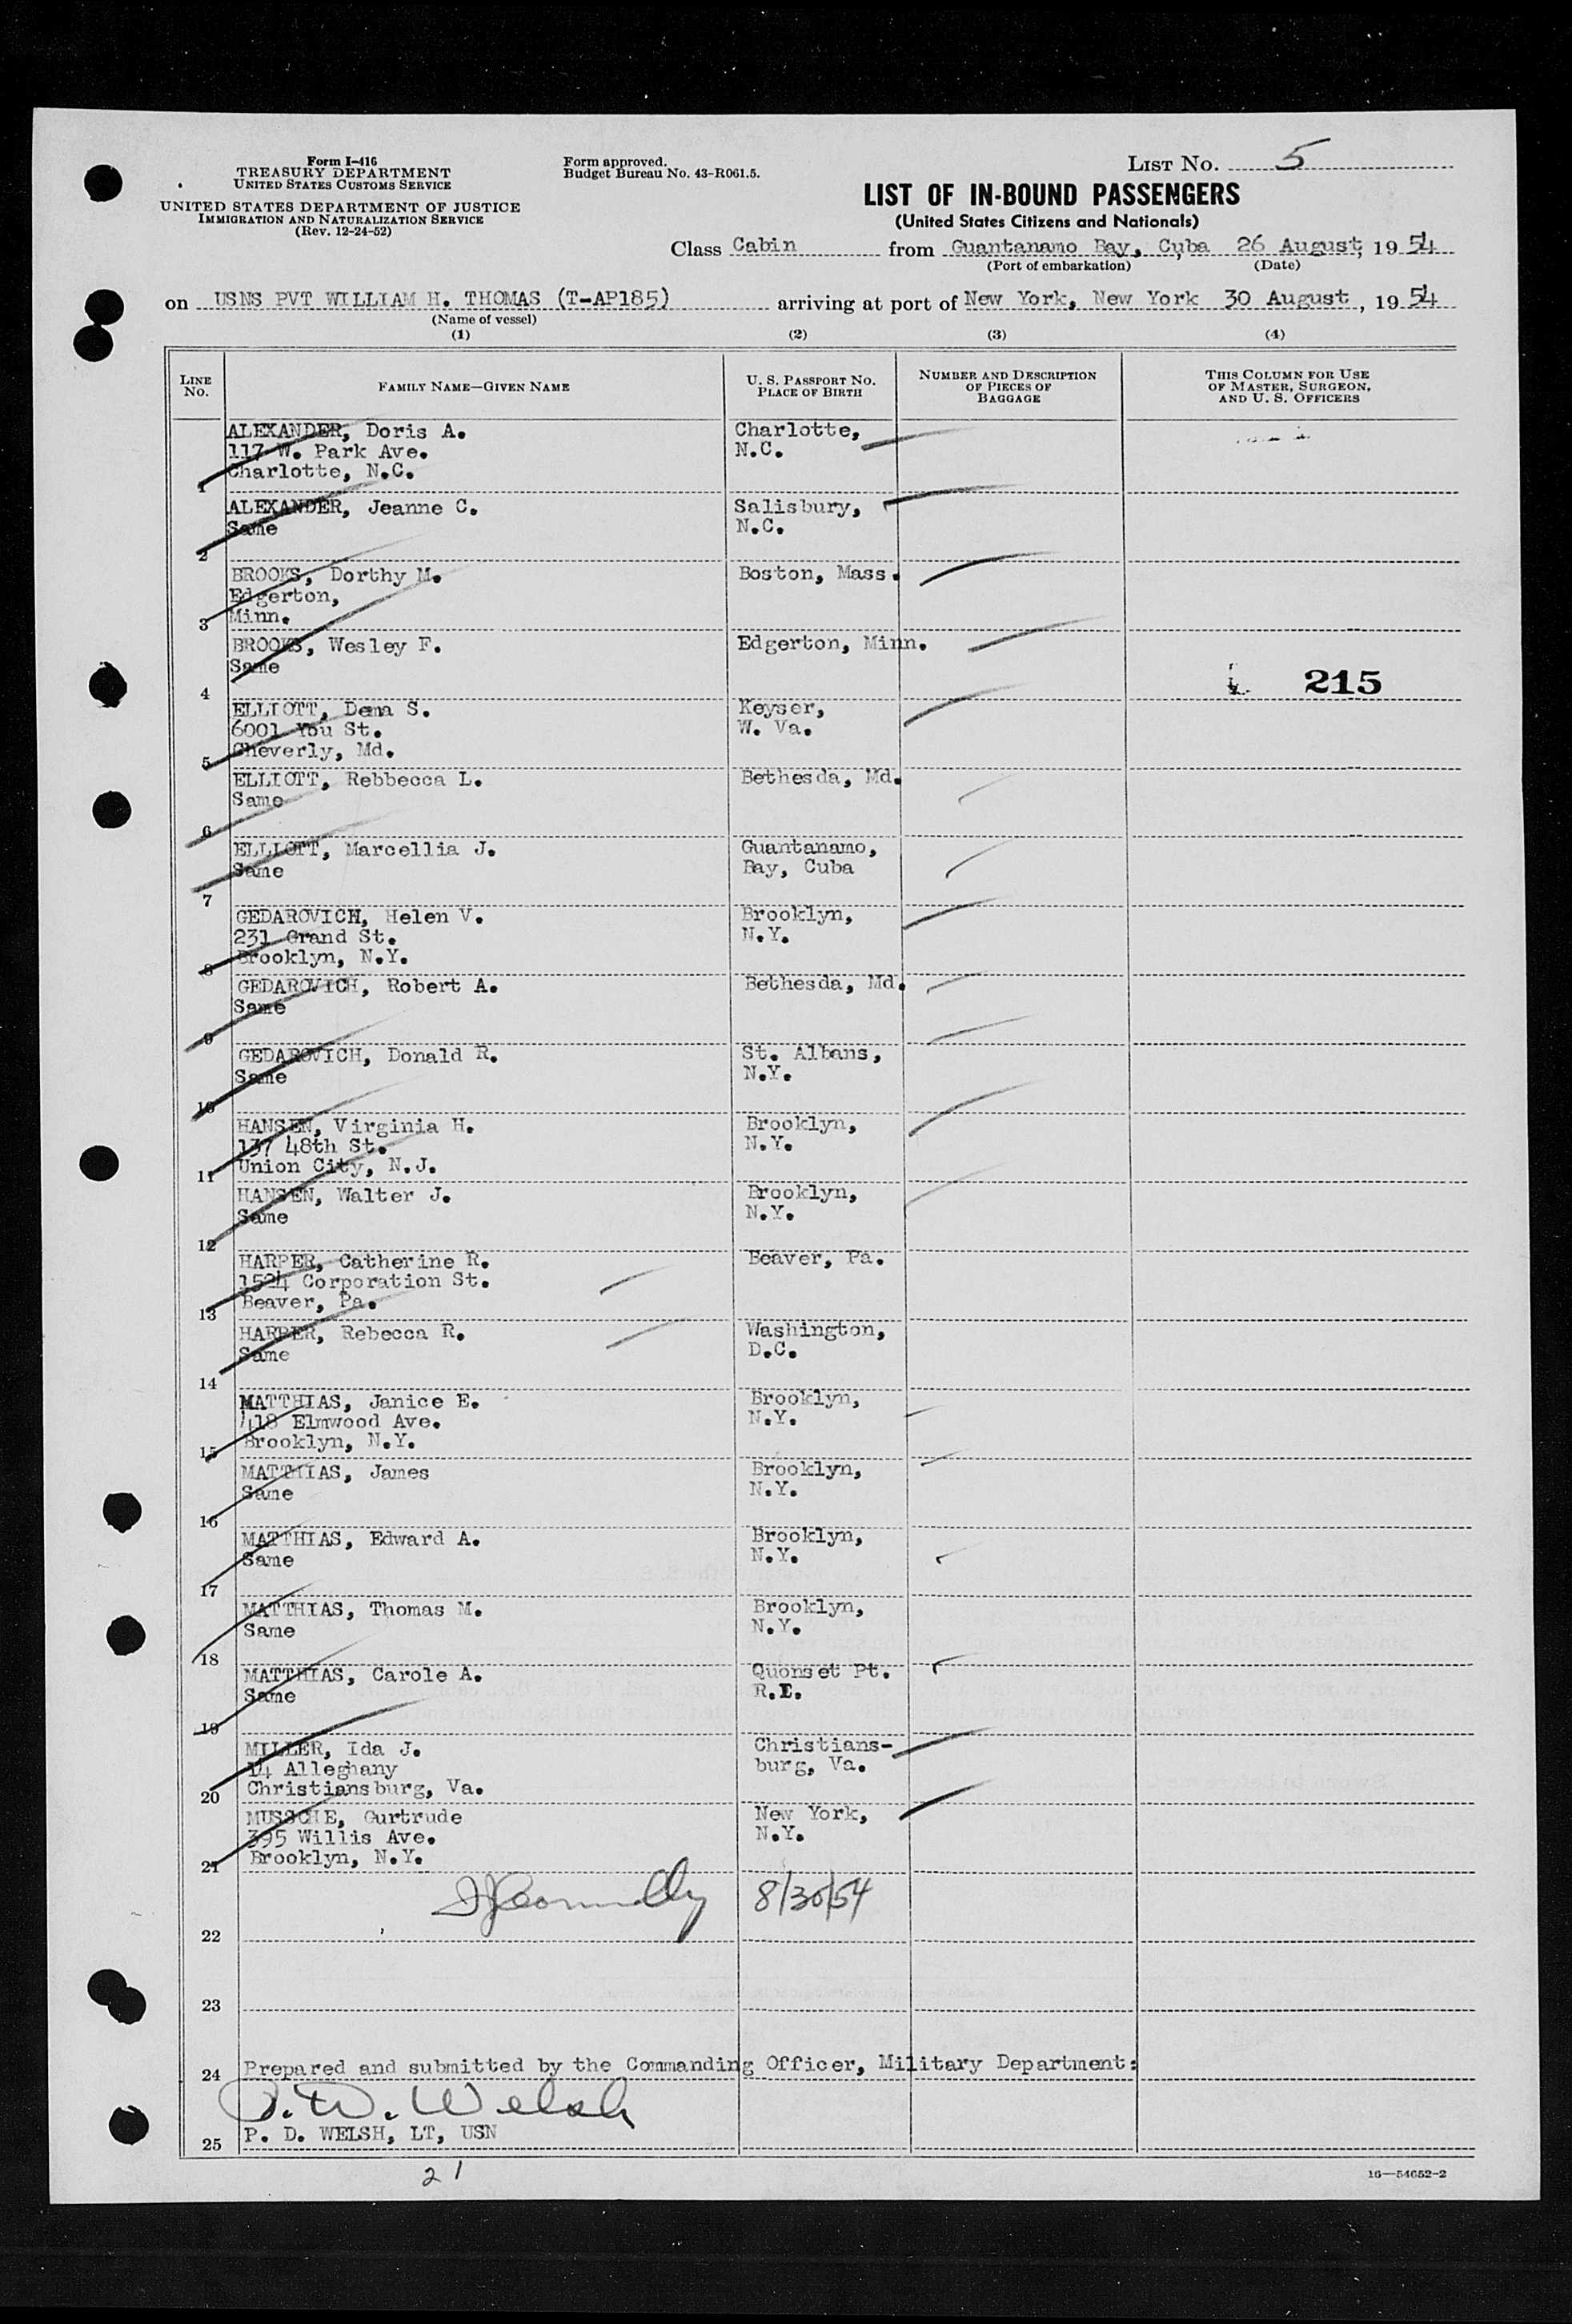 Form I-416
TREASURY DEPARTMENT
UNITED STATES CUSTOMS SERVICE
UNITED STATES DEPARTMENT OF JUSTICE
IMMIGRATION AND NATURALIZATION SERVICE
(Rev. 12-24-52)
Form approved.
Budget Bureau No. 43-R061.5.
LIST No. 5
LIST OF IN-BOUND PASSENGERS
(United States Citizens and Nationals)
Class Cabin from Guantanamo Bay, Cuba 26 August, 19 54
(Port of embarkation) (Date)
on USNS PVT WILLIAM H. THOMAS (T-AP185) arriving at port of New York, New York 30 August, 19 54
(Name of vessel)
(1) (2) (3) (4)
LINE No. FAMILY NAME—GIVEN NAME U. S. PASSPORT No. PLACE OF BIRTH NUMBER AND DESCRIPTION OF PIECES OF BAGGAGE THIS COLUMN FOR USE OF MASTER, SURGEON, AND U. S. OFFICERS
ALEXANDER, Doris A. Charlotte,
117 W. Park Ave. N.C.
Charlotte, N.C.
1
ALEXANDER, Jeanne C. Salisbury,
Same N.C.
2
BROOKS, Dorthy M. Boston, Mass.
Edgerton,
3 Minn.
BROOKS, Wesley F. Edgerton, Minn.
Same
4 215
ELLIOTT, Dema S. Keyser,
6001 You St. W. Va.
5 Cheverly, Md.
ELLIOTT, Rebbecca L. Bethesda, Md.
Same
6
ELLIOTT, Marcellia J. Guantanamo,
Same Bay, Cuba
7
GEDAROVICH, Helen V. Brooklyn,
231 Grand St. N.Y.
8 Brooklyn, N.Y.
GEDAROVICH, Robert A. Bethesda, Md.
Same
9
GEDAROVICH, Donald R. St. Albans,
Same N.Y.
10
HANSEN, Virginia H. Brooklyn,
137 48th St. N.Y.
11 Union City, N.J.
HANSEN, Walter J. Brooklyn,
Same N.Y.
12
HARPER, Catherine R. Beaver, Pa.
1524 Corporation St.
13 Beaver, Pa.
HARPER, Rebecca R. Washington,
Same D.C.
14
MATTHIAS, Janice E. Brooklyn,
418 Elmwood Ave. N.Y.
15 Brooklyn, N.Y.
MATTHIAS, James Brooklyn,
Same N.Y.
16
MATTHIAS, Edward A. Brooklyn,
Same N.Y.
17
MATTHIAS, Thomas M. Brooklyn,
Same N.Y.
18
MATTHIAS, Carole A. Quonset Pt.
Same R.I.
19
MILLER, Ida J. Christians-
14 Alleghany burg, Va.
20 Christiansburg, Va.
MUSSCHE, Gurtrude New York,
395 Willis Ave. N.Y.
21 Brooklyn, N.Y.
8/30/54
22
23
24 Prepared and submitted by the Commanding Officer, Military Department:
P. D. Welsh
25 P. D. WELSH, LT, USN
21
16—54652-2